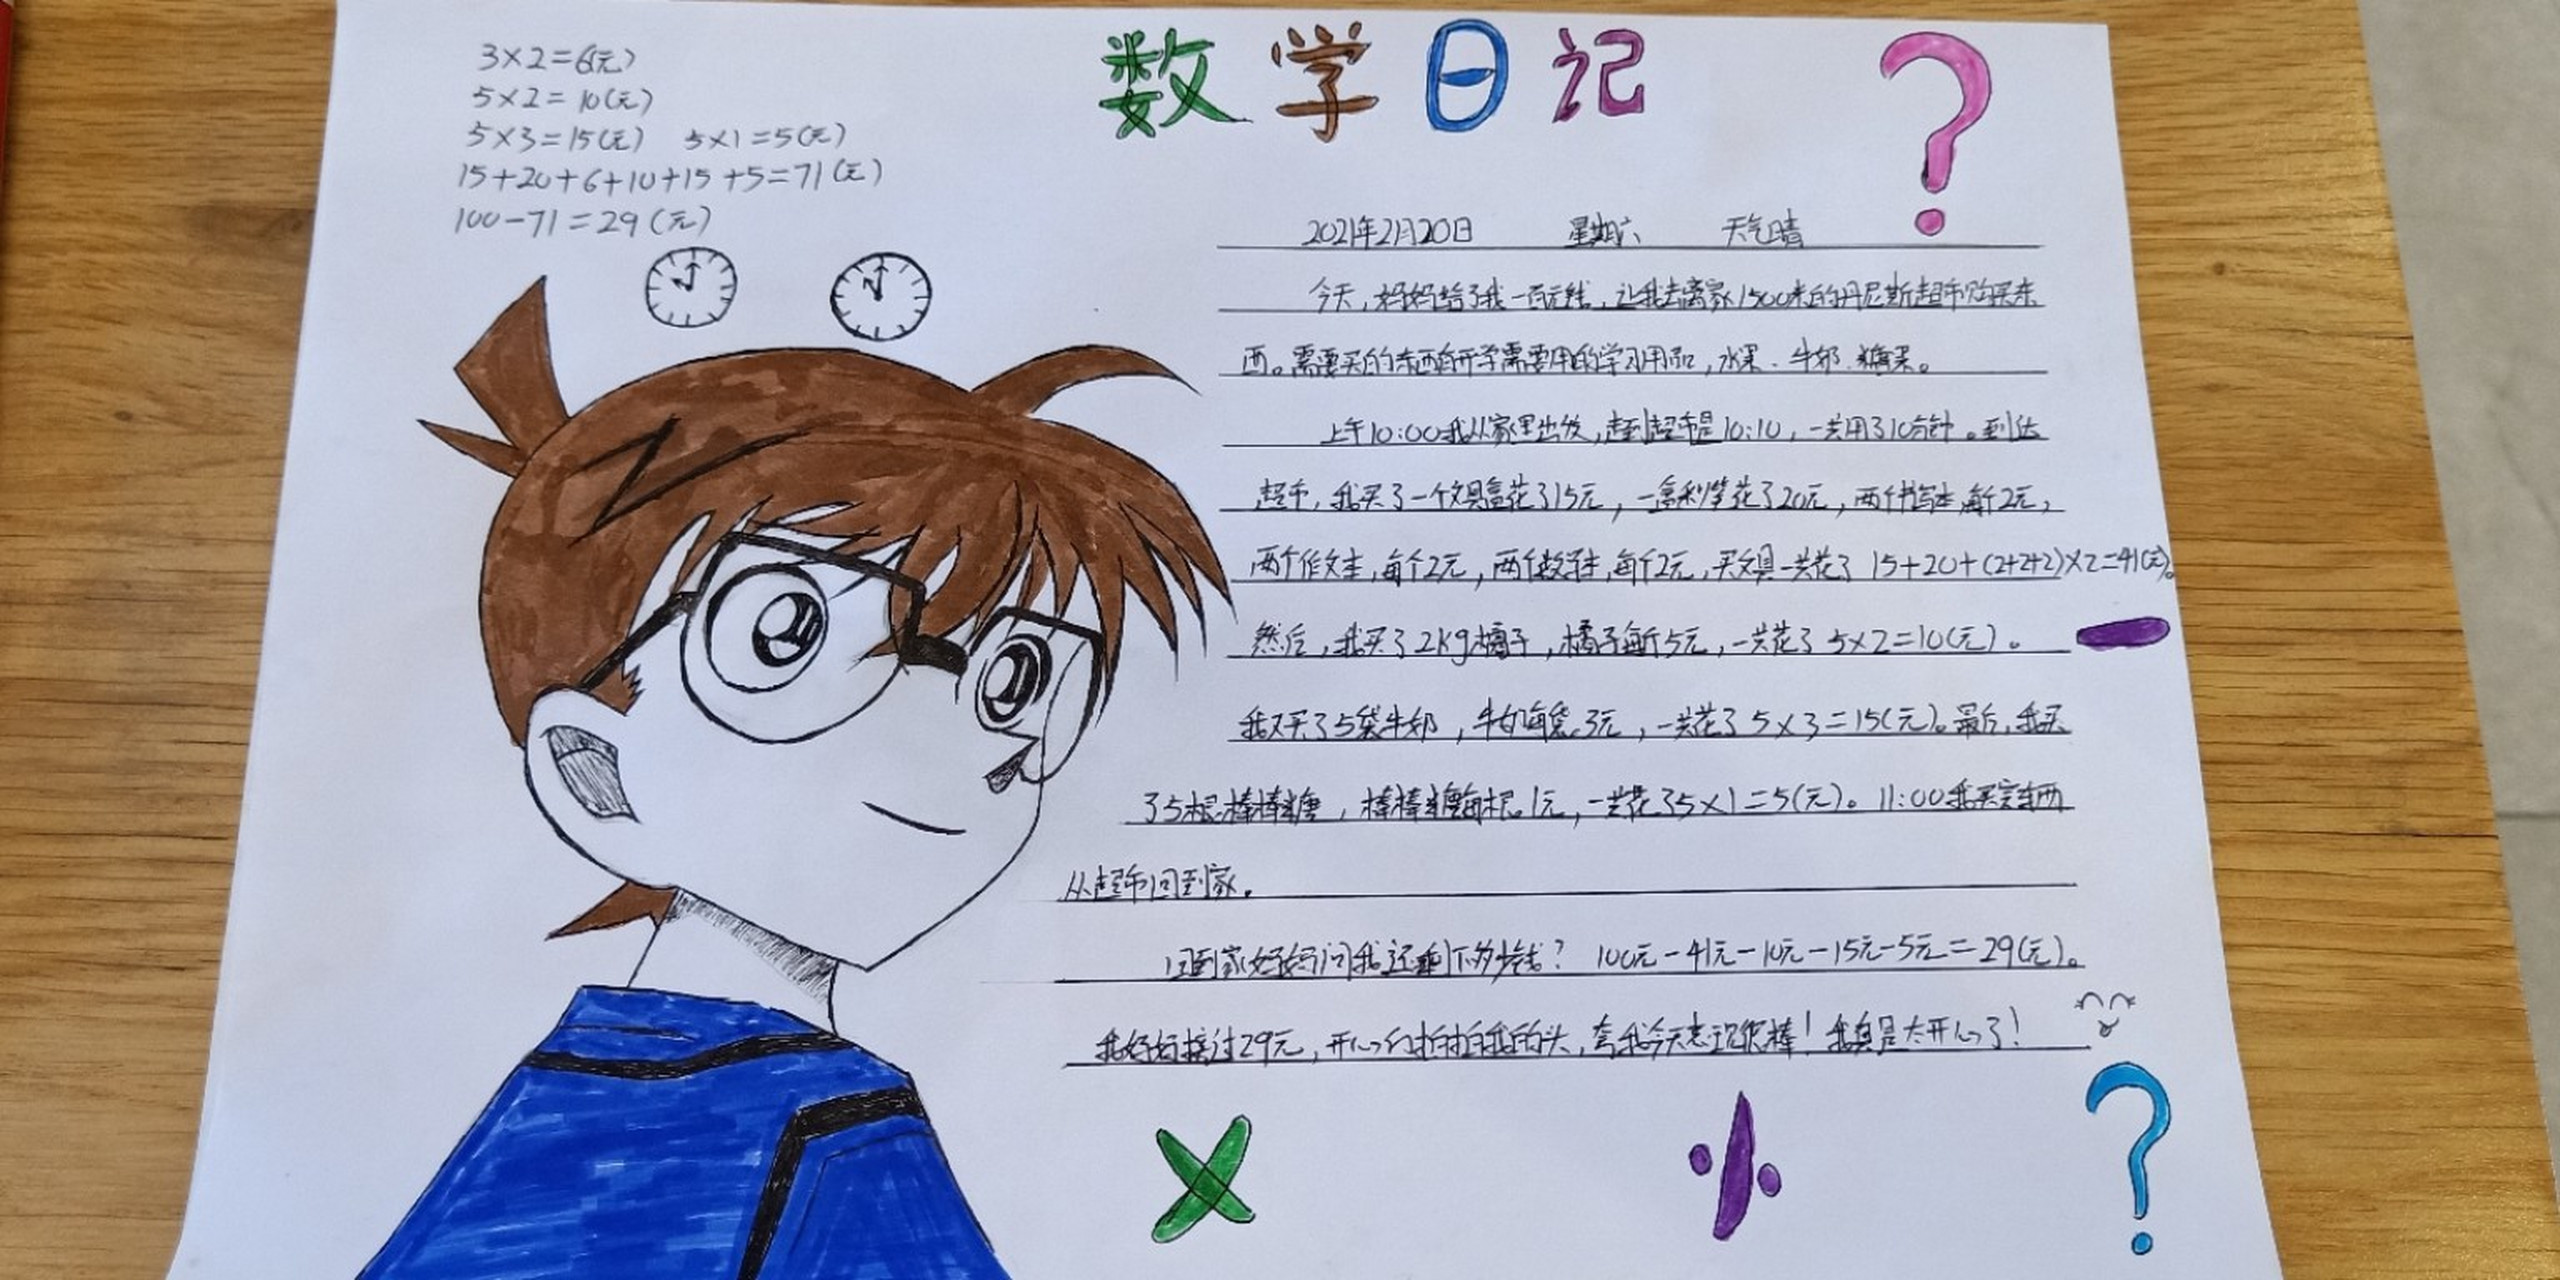 3×2=6(元)
5×2=10(元)
5×3=15(元) 5×1=5(元)
15+20+6+10+15+5=71(元)
100-71=29(元)
数学日记
2021年2月20日 星期六 天气晴
今天,妈妈给了我一百元钱,让我去离家1500米的丹尼斯超市购买东
西。需要买的东西有开学需要用的学习用品,水果、牛奶、糖果。
上午10:00我从家里出发,走到超市是10:10,一共用了10分钟。到达
超市,我买了一个文具盒花了15元,一盒彩笔花了20元,两个书写本,每个2元,
两个作文本,每个2元,两个数学本,每个2元,买文具一共花了 15+20+(2+2+2)×2=41(元)。
然后,我买了2kg橘子,橘子每斤5元,一共花了 5×2=10(元)。
我又买了5袋牛奶,牛奶每袋3元,一共花了 5×3=15(元)。最后,我买
了5根棒棒糖,棒棒糖每根1元,一共花了5×1=5(元)。11:00我买完东西
从超市回到家。
回到家妈妈问我还剩下多少钱? 100元-41元-10元-15元-5元=29(元)。
我妈妈接过29元,开心的拍拍我的头,夸我今天表现很棒!我真是太开心了!